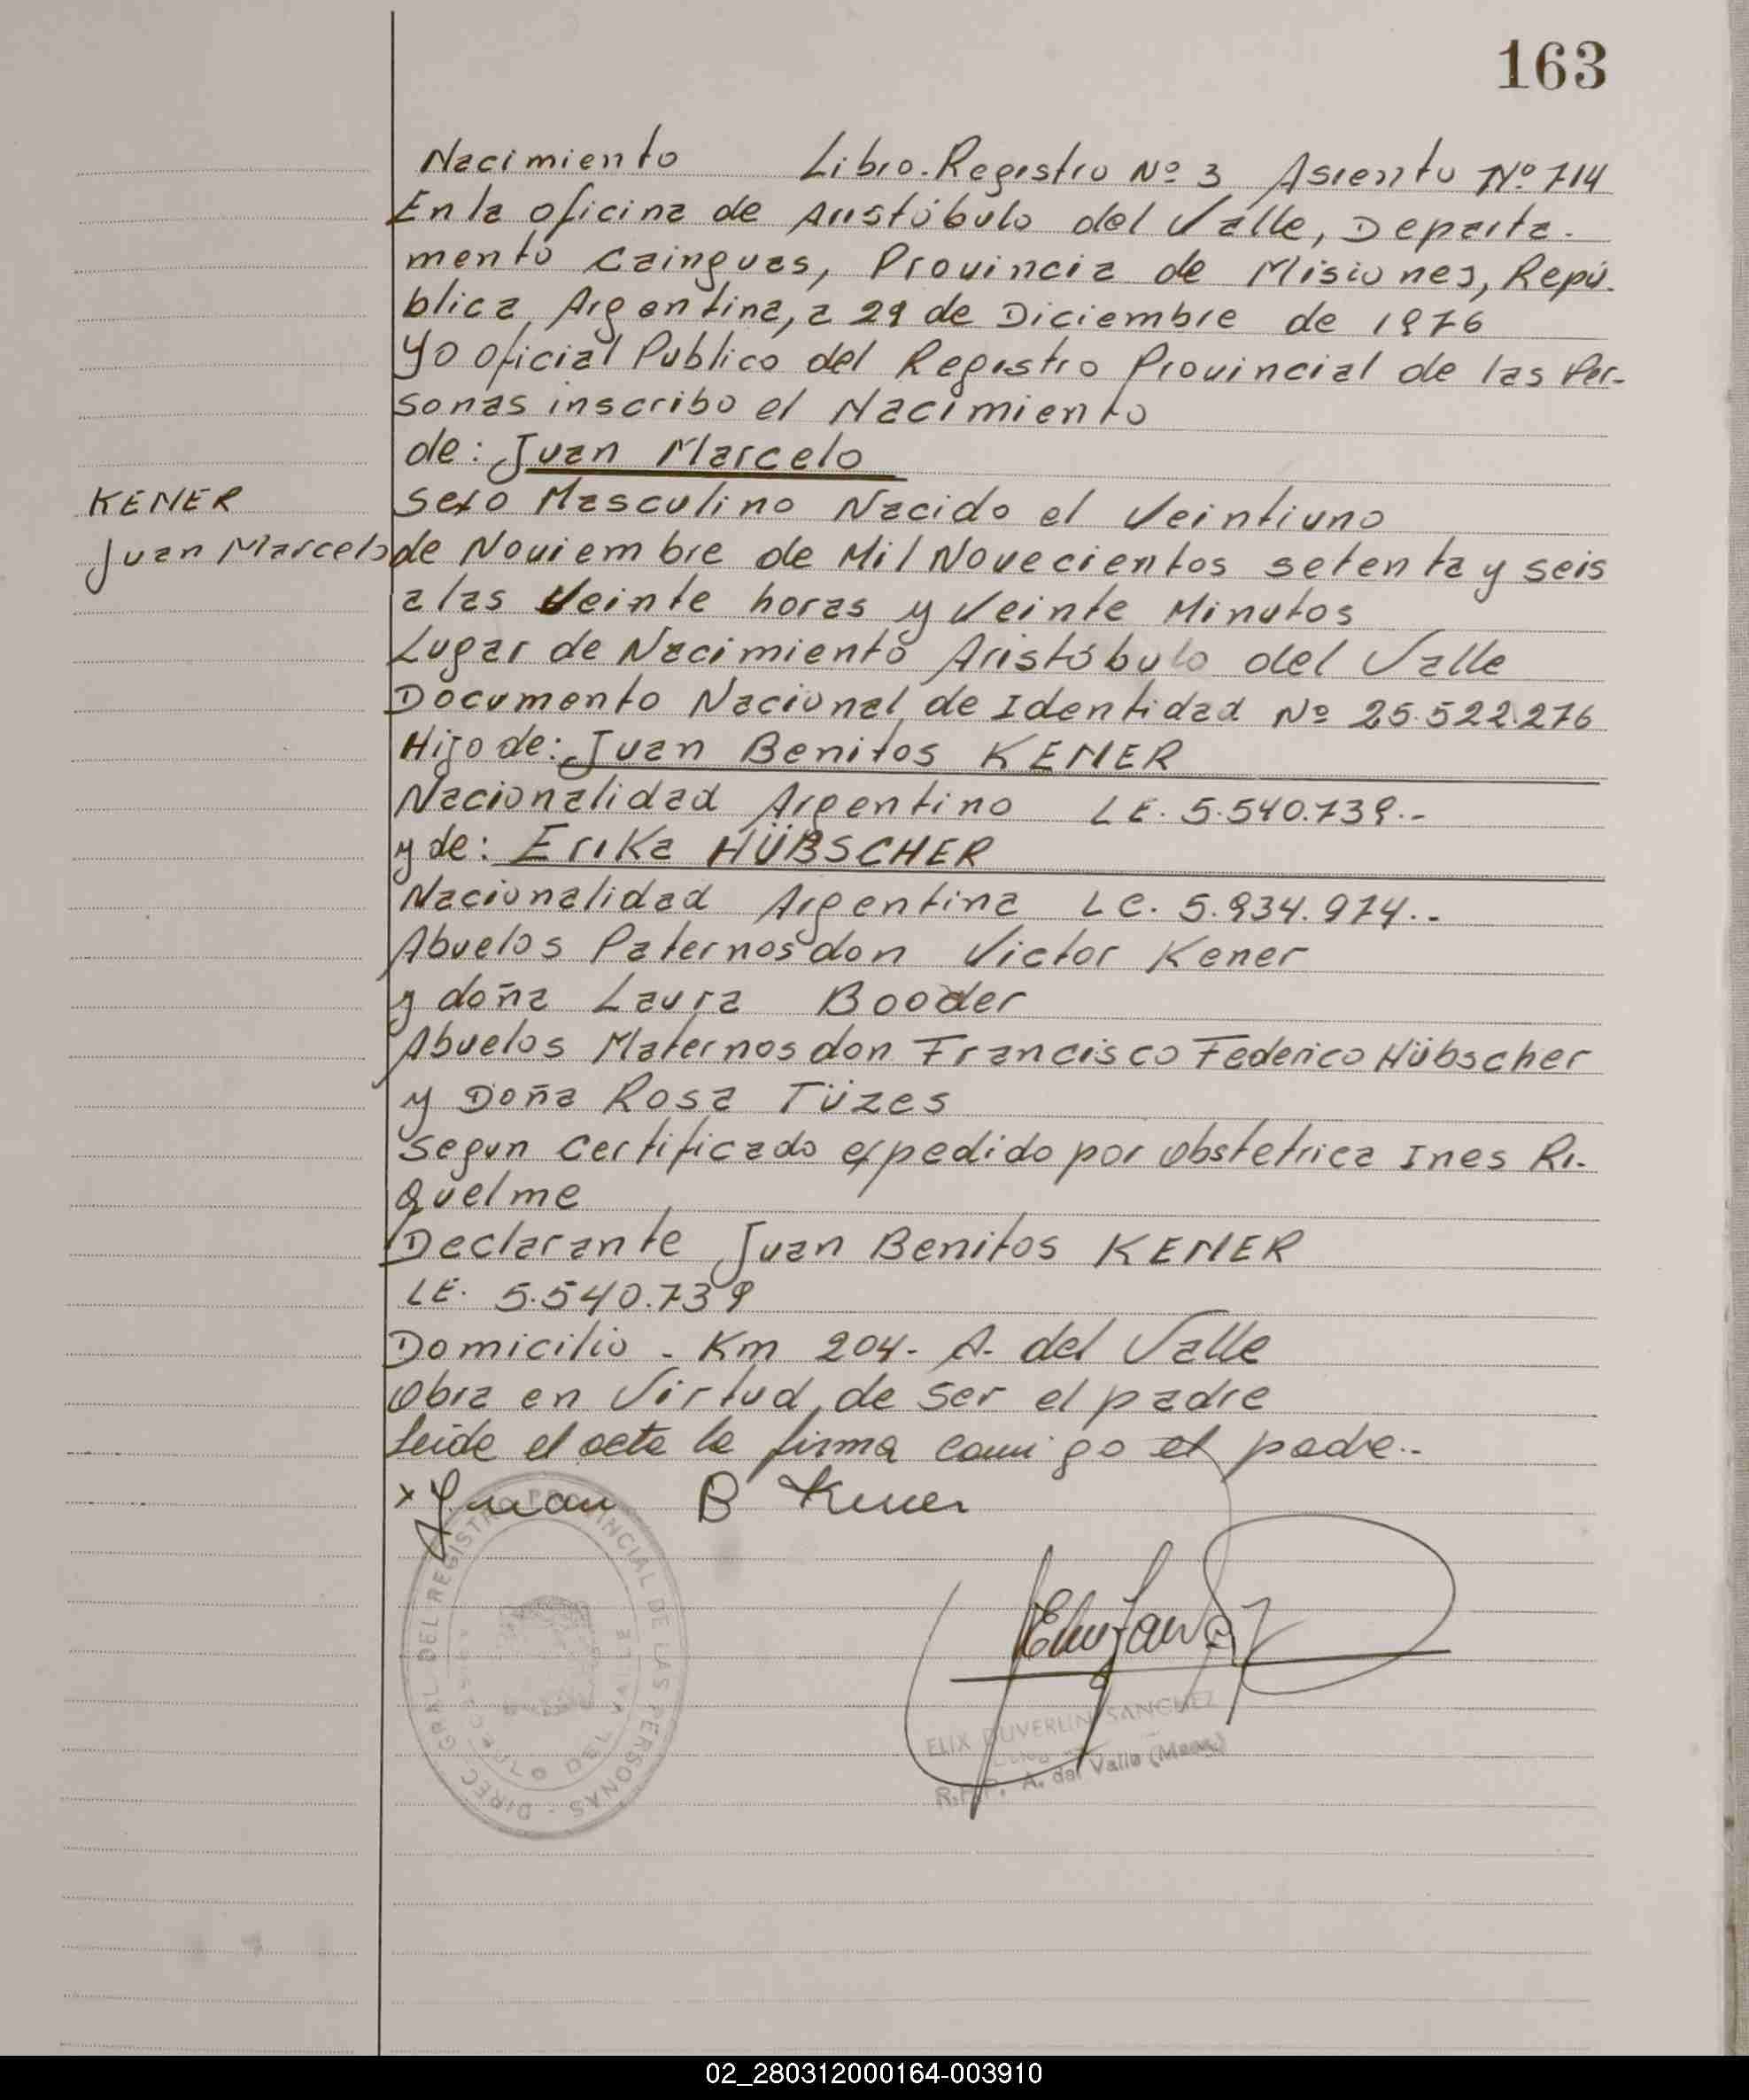 163
Nacimiento Libro. Registro Nº 3 Asiento Nº 714
En la oficina de Aristóbulo del Valle, Departa-
mento Cainguas, Provincia de Misiones, Repú-
blica Argentina, a 29 de Diciembre de 1976
Yo oficial Publico del Registro Provincial de las Per-
sonas inscribo el Nacimiento
de: Juan Marcelo
KENER
Sexo Masculino Nacido el Veintiuno
Juan Marcelo
de Noviembre de Mil Novecientos setenta y seis
a las Veinte horas y Veinte Minutos
Lugar de Nacimiento Aristóbulo del Valle
Documento Nacional de Identidad Nº 25.522.276
Hijo de: Juan Benitos KENER
Nacionalidad Argentino LE. 5.540.739.-
y de: Erika HÜBSCHER
Nacionalidad Argentina LC. 5.934.974.-
Abuelos Paternos don Victor Kener
y doña Laura Booder
Abuelos Maternos don Francisco Federico Hübscher
y Doña Rosa Tüzes
Segun Certificado expedido por obstetrica Ines Ri-
quelme
Declarante Juan Benitos KENER
LE. 5.540.739
Domicilio - Km 204 - A. del Valle
Obra en Virtud de ser el padre
Leida el acta la firma comigo el padre.-
x Juan B Kener
DIREC. GRAL. DEL REGISTRO PROVINCIAL DE LAS PERSONAS -
DEL VALLE
ELIX DUVERLIN SANCHEZ
R.P.P. A. del Valle (Mnes)
02_280312000164-003910